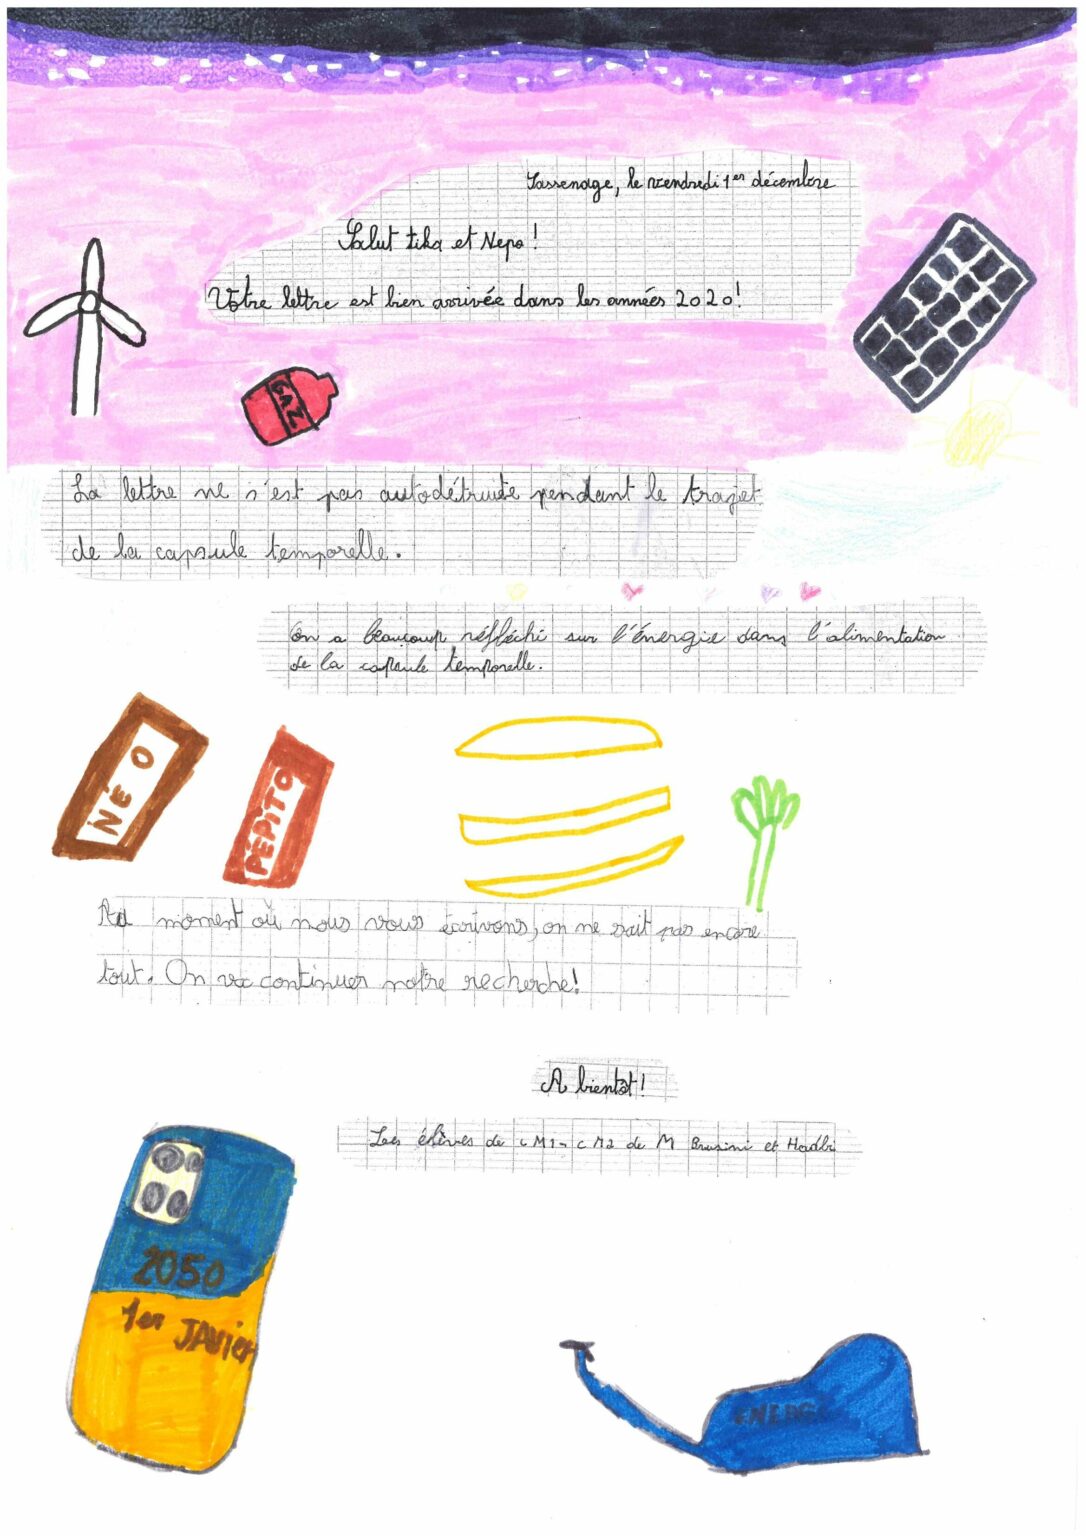 Sassenage, le vendredi 1er décembre
Salut Zika et Nepo !
Votre lettre est bien arrivée dans les années 2020!
GAZ
La lettre ne s'est pas autodétruite pendant le trajet
de la capsule temporelle.
On a beaucoup réfléchi sur l'énergie dans l'alimentation
de la capsule temporelle.
NÉO
PÉPITO
Au moment où nous vous écrivons, on ne sait pas encore
tout. On va continuer notre recherche!
A bientôt!
Les élèves de CM1-CM2 de M Brusini et
2050
1er JAvier
ENERG